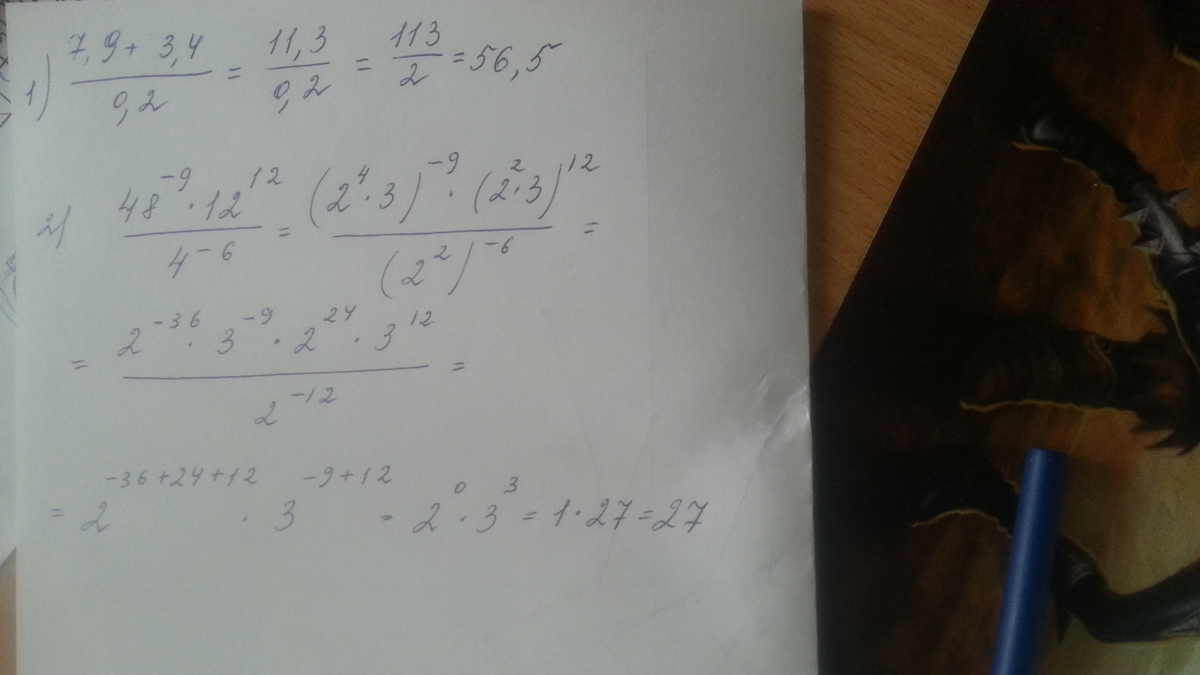 1) (7,9 + 3,4)/0,2 = 11,3/0,2 = 113/2 = 56,5
2) (48^-9 · 12^12)/4^-6 = ((2^4 · 3)^-9 · (2^2 · 3)^12)/(2^2)^-6 =
= (2^-36 · 3^-9 · 2^24 · 3^12)/2^-12 =
= 2^-36+24+12 · 3^-9+12 = 2^0 · 3^3 = 1 · 27 = 27